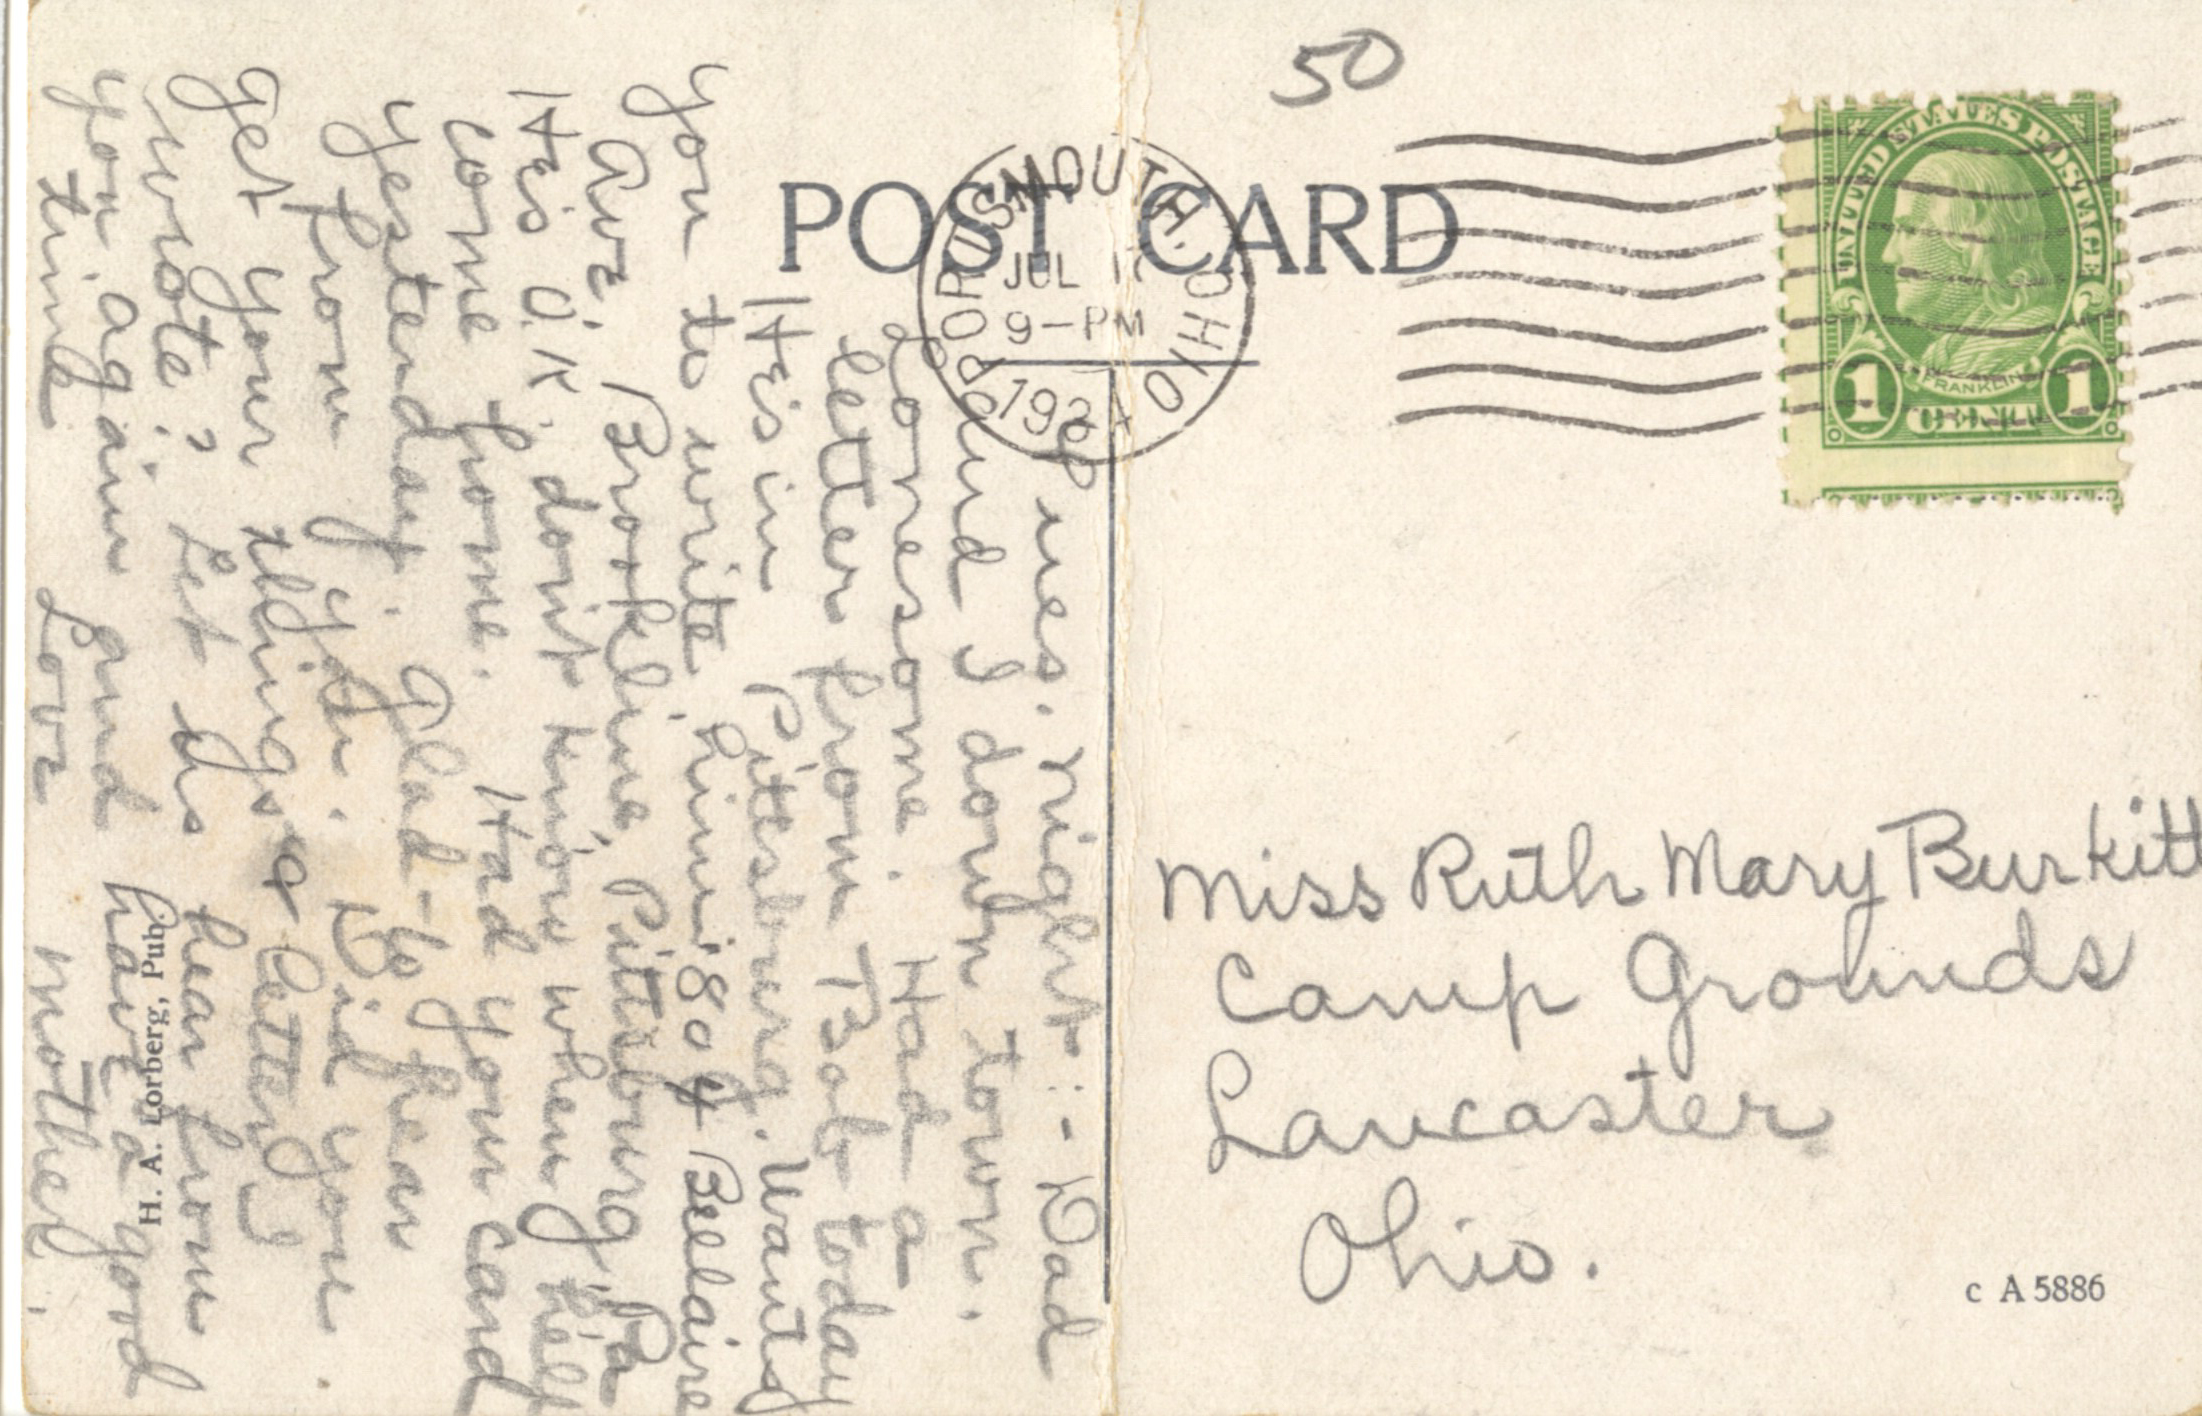 50
POST CARD
PORTSMOUTH, OHIO
JUL
9-PM
192
UNITED STATES POSTAGE
FRANKLIN
1 CENT 1
Tues. Night:- Dad
and I down town.
Lonesome. Had a
letter from Bob today
He's in Pittsburg. Wants
you to write him. 804 Bellaire
Ave, Brookline, Pittsburg, Pa
He's O.K. don't know when he'll
come home. Had your card
yesterday. Glad to hear
from you. Did you
get your things & letter I
wrote? Let us hear from
you again and have a good
time Love Mother.
H. A. Lorberg, Pub.
Miss Ruth Mary Burkitt
Camp Grounds
Lancaster
Ohio.
c A 5886